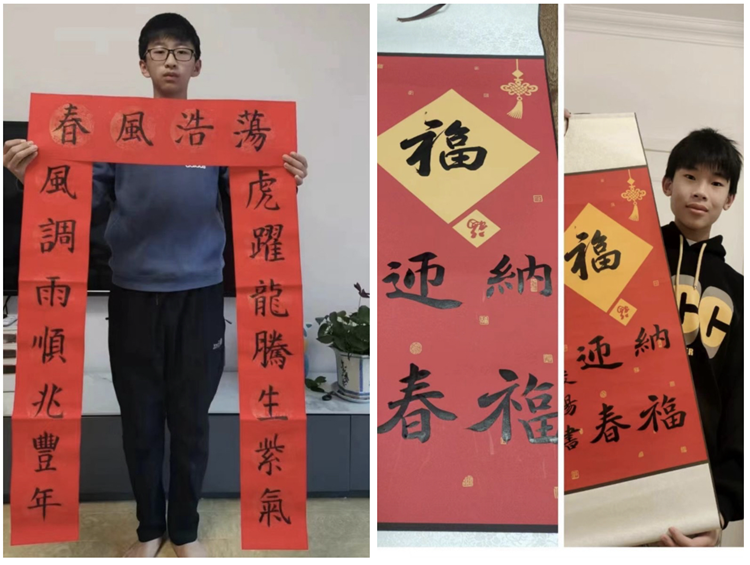 春風浩蕩
虎躍龍騰生紫氣
風調雨順兆豐年
福
福
納福
迎春
福
福
納福
迎春
書